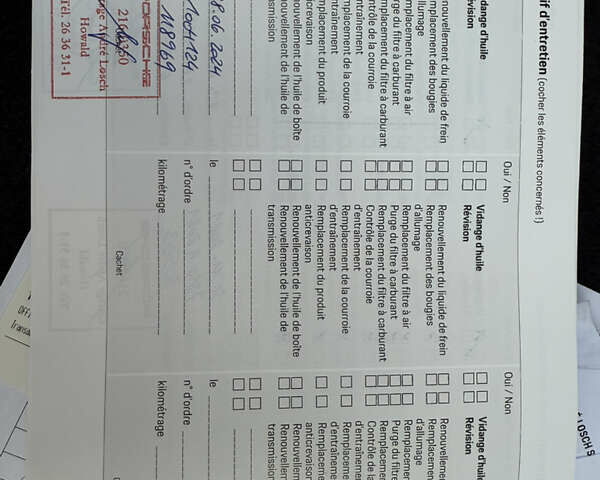 if d'entretien (cocher les éléments concernés !)
Vidange d'huile
Renouvellement du liquide de frein
Remplacement des bougies
d'allumage
Remplacement du filtre à air
Purge du filtre à carburant
Remplacement du filtre à carburant
Contrôle de la courroie
d'entraînement
Remplacement de la courroie
d'entraînement
Remplacement du produit
anticrevaison
Renouvellement de l'huile de boîte
Renouvellement de l'huile de
transmission
8.06.2024
118969
PORSCHE
André Losch
Howald
Tél. 26 36 31-1
Oui / Non
Vidange d'huile
Révision
Renouvellement du liquide de frein
Remplacement des bougies
d'allumage
Remplacement du filtre à air
Purge du filtre à carburant
Remplacement du filtre à carburant
Contrôle de la courroie
d'entraînement
Remplacement de la courroie
d'entraînement
Remplacement du produit
anticrevaison
Renouvellement de l'huile de boîte
Renouvellement de l'huile de
transmission
le
n° d'ordre
kilométrage
Cachet
Oui / Non
Vidange d'huile
Révision
Renouvellemen
Remplacement
d'allumage
Remplacemen
Purge du filtre à
Remplacemen
Contrôle de la
d'entraînemen
Remplacemen
d'entraînemen
Remplaceme
anticrevaison
Renouvellem
Renouvellem
transmission
le
n° d'ordre
kilométrage
LOSCH S